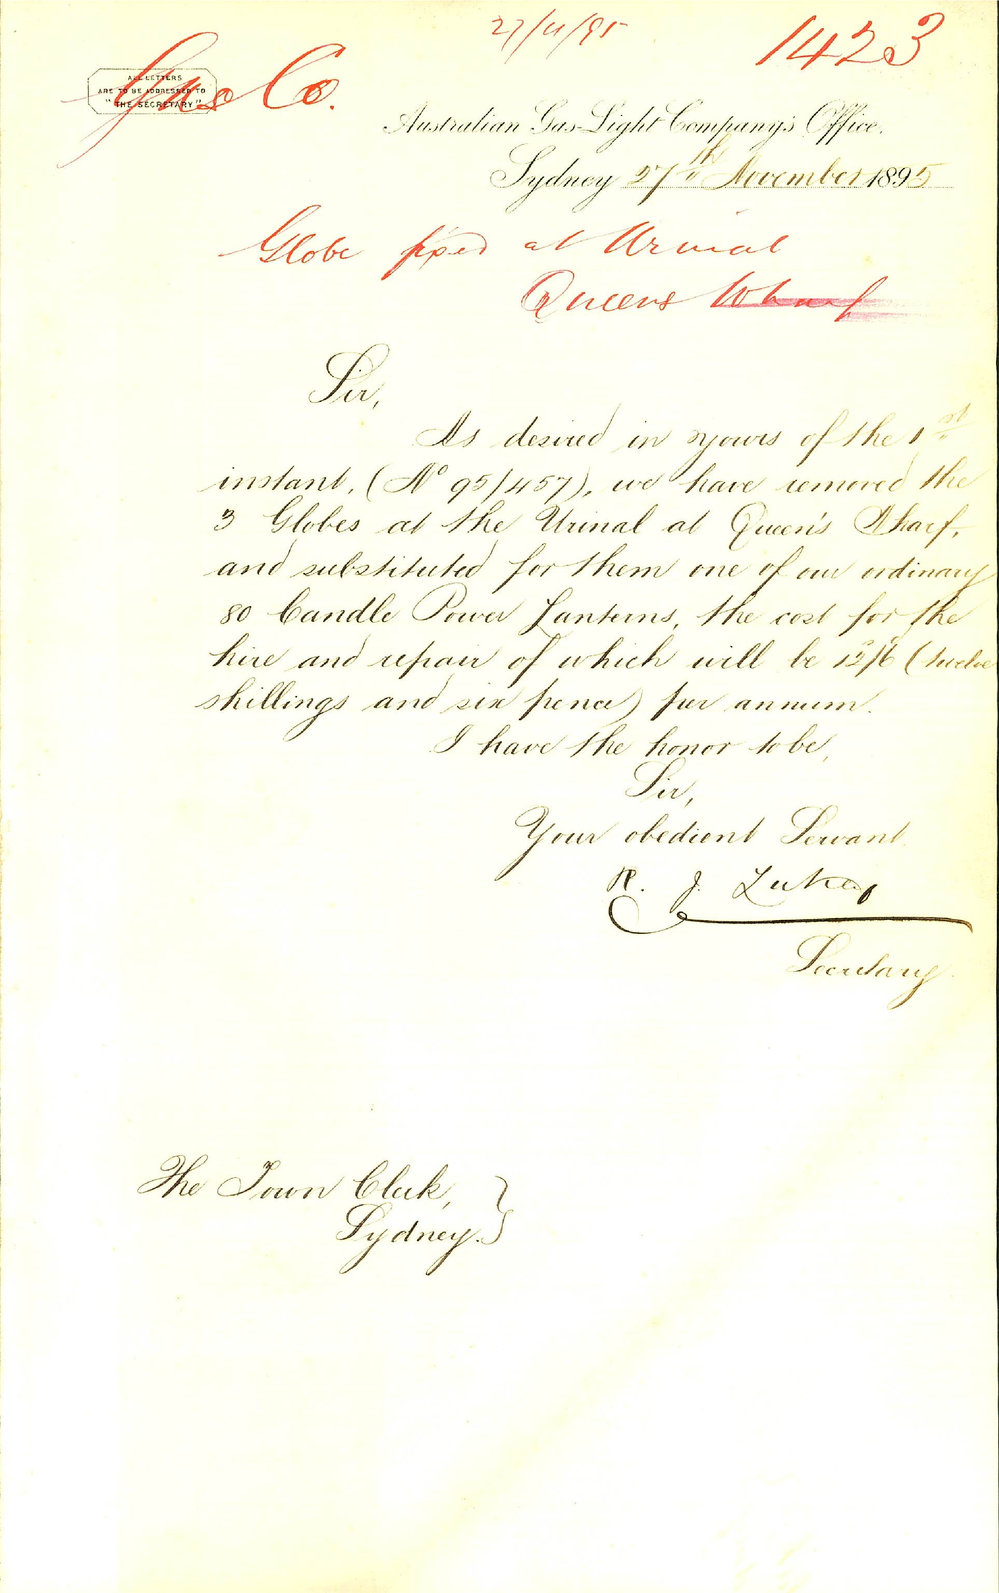 27/11/95
1423
Gas Co.
ALL LETTERS
ARE TO BE ADDRESSED TO
"THE SECRETARY"
Australian Gas-Light Company's Office.
Sydney 27th November 1895
Globe fixed at Urinal
Queens Wharf
Sir,
As desired in yours of the 1st
instant, (No 95/457), we have removed the
3 Globes at the Urinal at Queen's Wharf,
and substituted for them one of our ordinary
80 Candle Power Lanterns, the cost for the
hire and repair of which will be 12/6 (twelve
shillings and six pence) per annum.
I have the honor to be,
Sir,
Your obedient Servant
R. J. Lukey
Secretary.
The Town Clerk,
Sydney.